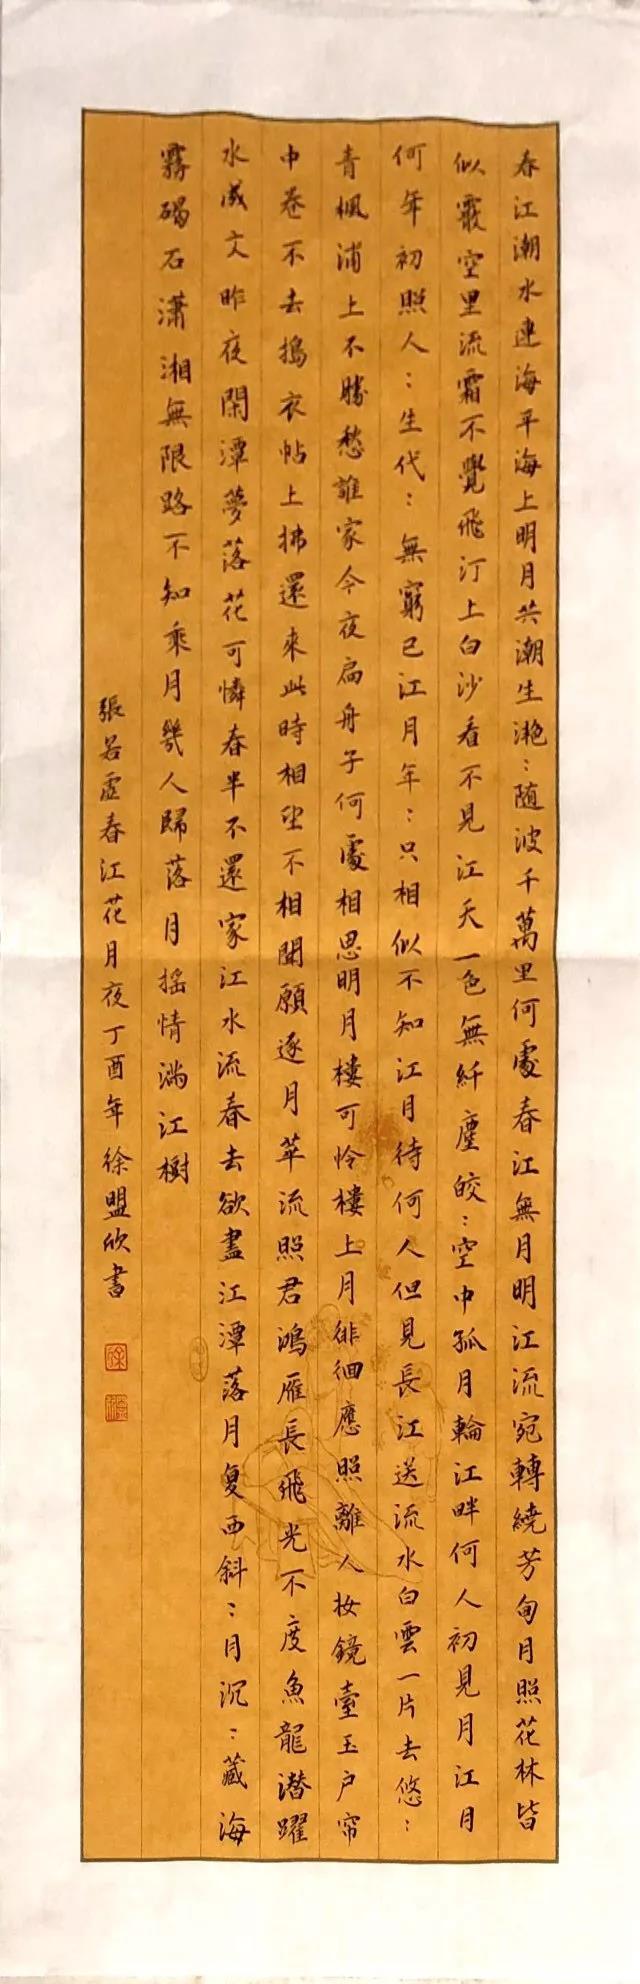 春江潮水連海平海上明月共潮生滟：随波千萬里何處春江無月明江流宛轉繞芳甸月照花林皆
似霰空里流霜不覺飛汀上白沙看不見江天一色無纤塵皎：空中孤月輪江畔何人初見月江月
何年初照人：生代：無窮已江月年：只相似不知江月待何人但見長江送流水白雲一片去悠：
青楓浦上不勝愁誰家今夜扁舟子何處相思明月樓可怜樓上月徘徊應照離人妆鏡臺玉户帘
中卷不去搗衣帖上拂還来此時相望不相聞願逐月華流照君鴻雁長飛光不度魚龍潜躍
水成文昨夜閑潭夢落花可憐春半不還家江水流春去欲盡江潭落月复西斜：月沉：藏海
霧碣石潇湘無限路不知乘月幾人歸落月摇情滿江樹
張若虚春江花月夜丁酉年徐盟欣書
徐